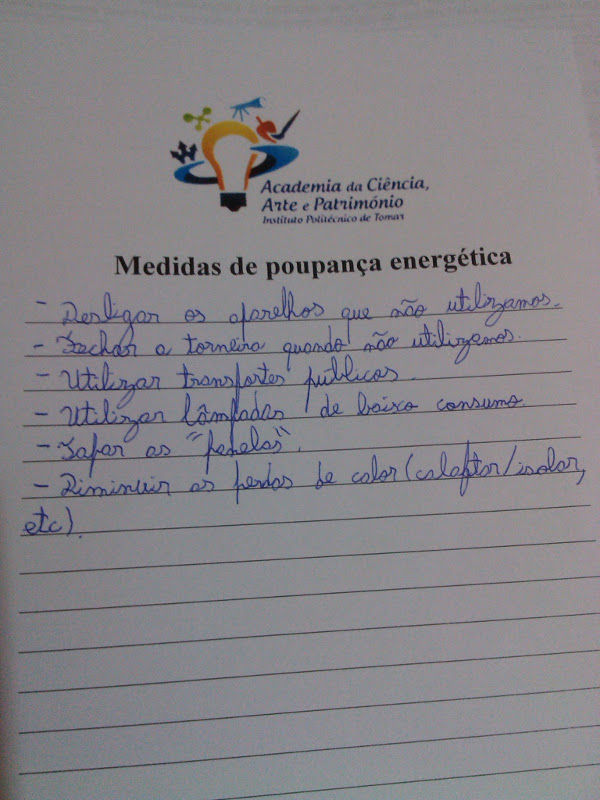 Academia da Ciência,
Arte e Património
Instituto Politécnico de Tomar
Medidas de poupança energética
- Desligar os aparelhos que não utilizamos.
- Fechar a torneira quando não utilizamos.
- Utilizar transportes públicos.
- Utilizar lâmpadas de baixo consumo.
- Tapar as "panelas".
- Diminuir as perdas de calor (calaftar/isolar,
etc).